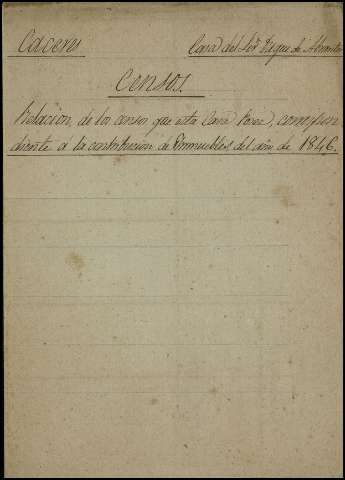 Caceres
Casa del Sor. Duque de Abrantes
Censos.
Relacion, de los censos que esta Casa Posee, correspon
diente á la contribucion de Inmuebles del año de 1846.